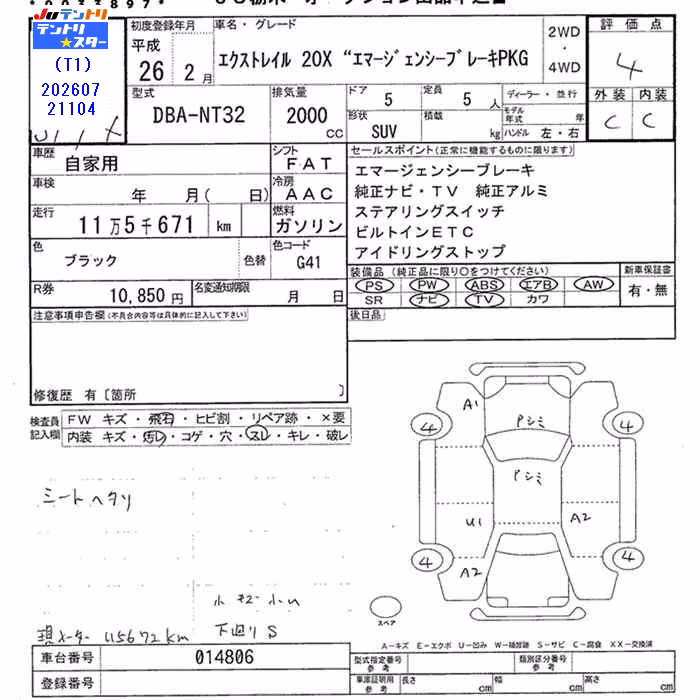 Juテントリ
テントリ★スター
(T1)
202607
21104
初度登録年月
平成
26 2月
車名・グレード
エクストレイル 20X “エマージェンシーブレーキPKG
2WD
・
4WD
評価点
4
外装 内装
C C
型式
DBA-NT32
排気量
2000
CC
ドア
5
定員
5 人
ディーラー・並行
モデル年式 年
形状
SUV
積載
kg
ハンドル 左・右
車歴
自家用
シフト
FAT
車検
年 月( 日)
冷房
AAC
走行
11万5千671 km
燃料
ガソリン
色
ブラック
色替
色コード
G41
R券
10,850円
名変通知期限
月 日
セールスポイント(正常に機能するものに限ります)
エマージェンシーブレーキ
純正ナビ・TV 純正アルミ
ステアリングスイッチ
ビルトインETC
アイドリングストップ
装備品(純正品に限り○をつけてください)
新車保証書
PS PW ABS エアB AW
SR ナビ TV カワ
有・無
後日品
注意事項申告欄(不具合内容等は具体的に記入して下さい)
修復歴 有〔箇所 〕
検査員記入欄
FW キズ・飛石・ヒビ割・リペア跡・×要
内装 キズ・汚レ・コゲ・穴・スレ・キレ・破レ
シートヘタリ
下廻りS
現メーター 115672km
A1
Pシミ
4
4
Pシミ
U1
A2
4
4
A2
スペア
A-キズ E-エクボ U-凹み W-補修跡 S-サビ C-腐食 XX-交換済
車台番号
014806
登録番号
型式指定番号
参考
類別区分番号
参考
車庫証明用
参考
長さ cm
幅 cm
高さ cm